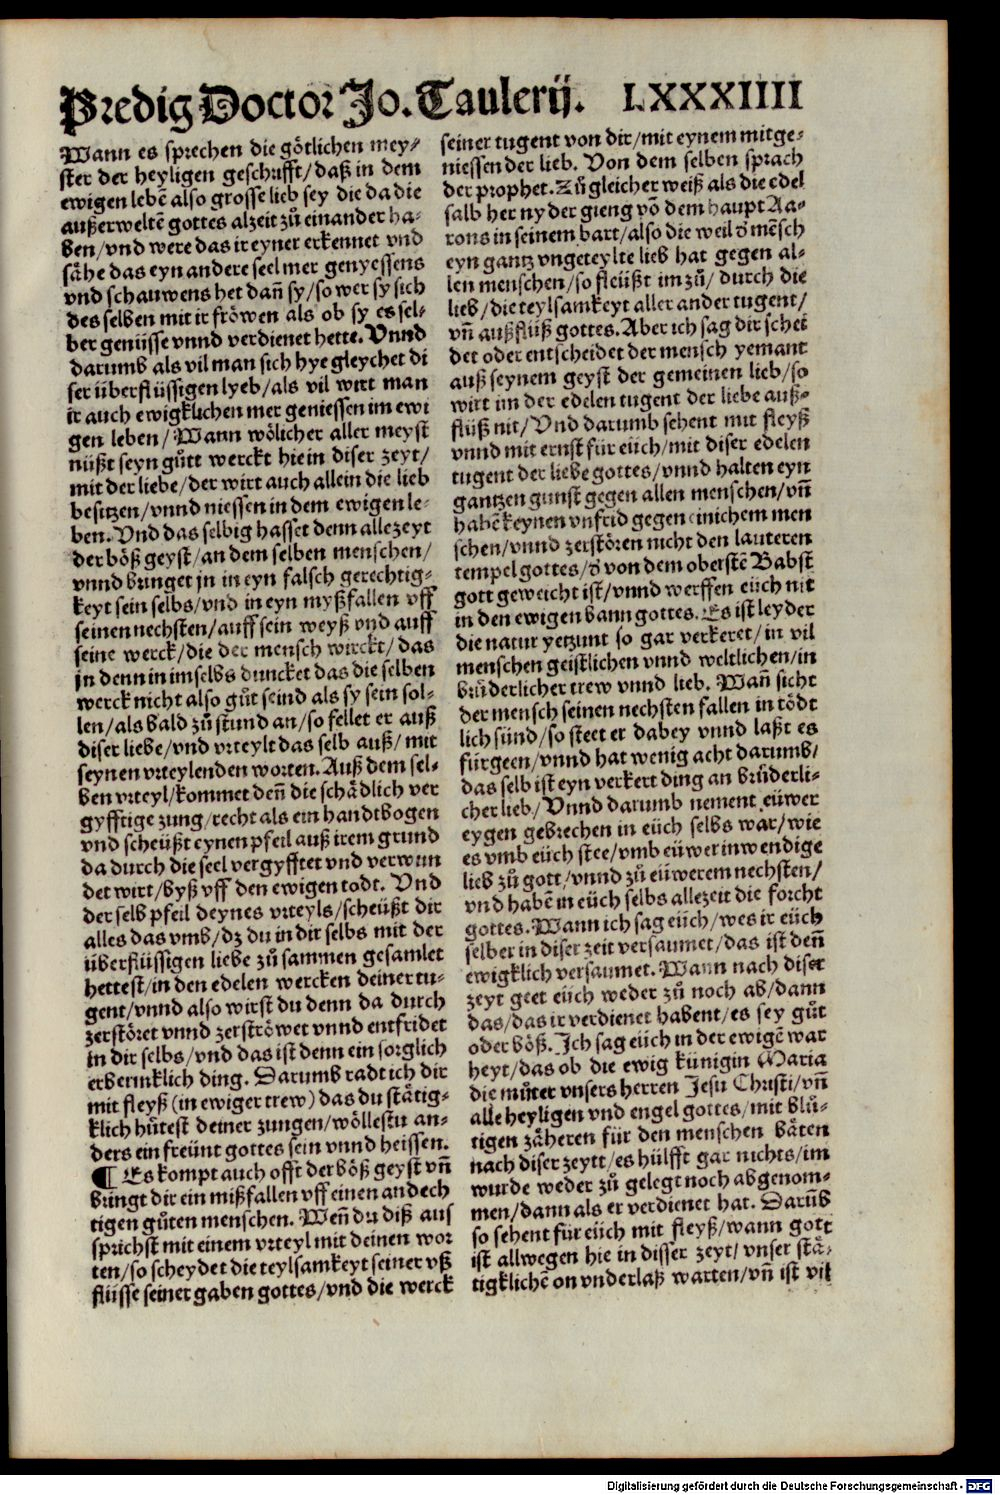 Predig Doctor Jo. Taulerij. LXXXIIII
Wann es sprechen die götlichen mey⸗
ster der heyligen geschrifft/daß in dem
ewigen lebē also grosse lieb sey die da die
außerweltē gottes alzeit zů einander ha⸗
ben/vnd were das ir eyner erkennet vnd
sähe das eyn andere seel mer genyessens
vnd schauwens het dañ sy/so wer sy sich
des selben mit ir fröwen als ob sy es sel⸗
ber genüsse vnnd verdienet hette. Vnnd
darumb als vil man sich hye gleychet di
ser überflüssigen lyeb/als vil wirt man
ir auch ewigklichen mer geniessen im ewi
gen leben/Wann wölicher aller meyst
nüßt seyn gůtt werckt hie in diser zeyt/
mit der liebe/der wirt auch allein die lieb
besitzen/vnnd niessen in dem ewigen le⸗
ben. Vnd das selbig hasset denn allezeyt
der böß geyst/an dem selben menschen/
vnnd bringet jn in eyn falsch gerechtig⸗
keyt sein selbs/vnd in eyn myßfallen vff
seinen nechsten/auff sein weyß vnd auff
seine werck/die der mensch wirckt/das
jn denn in im selbs duncket das die selben
werck nicht also gůt seind als sy sein sol⸗
len/als bald zů stund an/so fellet er auß
diser liebe/vnd vrteylt das selb auß/mit
seynen vrteylenden worten. Auß dem sel⸗
ben vrteyl/kommet deñ die schädlich ver
gyfftige zung/recht als ein handtbogen
vnd scheüßt eynen pfeil auß irem grund
da durch die seel vergyfftet vnd verwun
det wirt/byß vff den ewigen todt. Vnd
der selb pfeil deynes vrteyls/scheüßt dir
alles das vmb/dz du in dir selbs mit der
überflüssigen liebe zů sammen gesamlet
hettest/in den edelen wercken deiner tu⸗
gent/vnnd also wirst du denn da durch
zerstöret vnnd zerströwet vnnd entfridet
in dir selbs/vnd das ist denn ein sorglich
erberinklich ding. Darumb radt ich dir
mit fleyß (in ewiger trew) das du stätig⸗
klich hůtest deiner zungen/wöllestu an⸗
ders ein freünt gottes sein vnnd heissen.
¶ Es kompt auch offt der böß geyst vñ
bringt dir ein mißfallen vff einen andech
tigen gůten menschen. Weñ du diß aus
sprichst mit einem vrteyl mit deinen wor
ten/so scheydet die teylsamkeyt seiner vß
flüsse seiner gaben gottes/vnd die werck
seiner tugent von dir/mit eynem mitge⸗
niessen der lieb. Von dem selben sprach
der prophet. Zů gleicher weiß als die edel
salb her nyder gieng võ dem haupt Aa⸗
rons in seinem bart/also die weil ð mēsch
eyn gantz vngeteylte lieb hat gegen al⸗
len menschen/so fleüßt im zů/durch die
lieb/die teylsamkeyt aller ander tugent/
vñ außflüß gottes. Aber ich sag dir schei
det oder entscheidet der mensch yemant
auß seynem geyst der gemeinen lieb/so
wirt im der edelen tugent der liebe auß⸗
flüß nit/Vnd darumb sehent mit fleyß
vnnd mit ernst für eüch/mit diser edelen
tugent der liebe gottes/vnnd halten eyn
gantzen gunst gegen allen menschen/vñ
habē keynen vnfrid gegen einichem men
schen/vnnd zerstören nicht den lauteren
tempel gottes/ð von dem oberstē Babst
gott geweicht ist/vnnd werffen eüch nit
in den ewigen bann gottes. Es ist leyder
die natur yetzunt so gar verkeret/in vil
menschen geistlichen vnnd weltlichen/in
brůderlicher trew vnnd lieb. Wañ sicht
der mensch seinen nechsten fallen in tödt
lich sünd/so steet er dabey vnnd laßt es
fürgeen/vnnd hat wenig acht darumb/
das selb ist eyn verkert ding an brůderli⸗
cher lieb/Vnnd darumb nement eüwer
eygen gebrechen in eüch selbs war/wie
es vmb eüch stee/vmb eüwer inwendige
lieb zů gott/vnnd zů eüwerem nechsten/
vnd habē in eüch selbs allezeit die forcht
gottes. Wann ich sag eüch/wes ir eüch
selber in diser zeit versaumet/das ist deñ
ewigklich versaumet. Wann nach diser
zeyt geet eüch weder zů noch ab/dann
das/das ir verdienet habent/es sey gůt
oder böß. Ich sag eüch in der ewigē war
heyt/das ob die ewig künigin Maria
die můter vnsers herren Jesu Christi/vñ
alle heyligen vnd engel gottes/mit blů⸗
tigen zäheren für den menschen bäten
nach diser zeytt/es hülfft gar nichts/im
wurde weder zů gelegt noch abgenom⸗
men/dann als er verdienet hat. Darūb
so sehent für eüch mit fleyß/wann gott
ist allwegen hie in disser zeyt/vnser stä⸗
tigklichē on vnderlaß warten/vñ ist vil
Digitalisierung gefördert durch die Deutsche Forschungsgemeinschaft - DFG